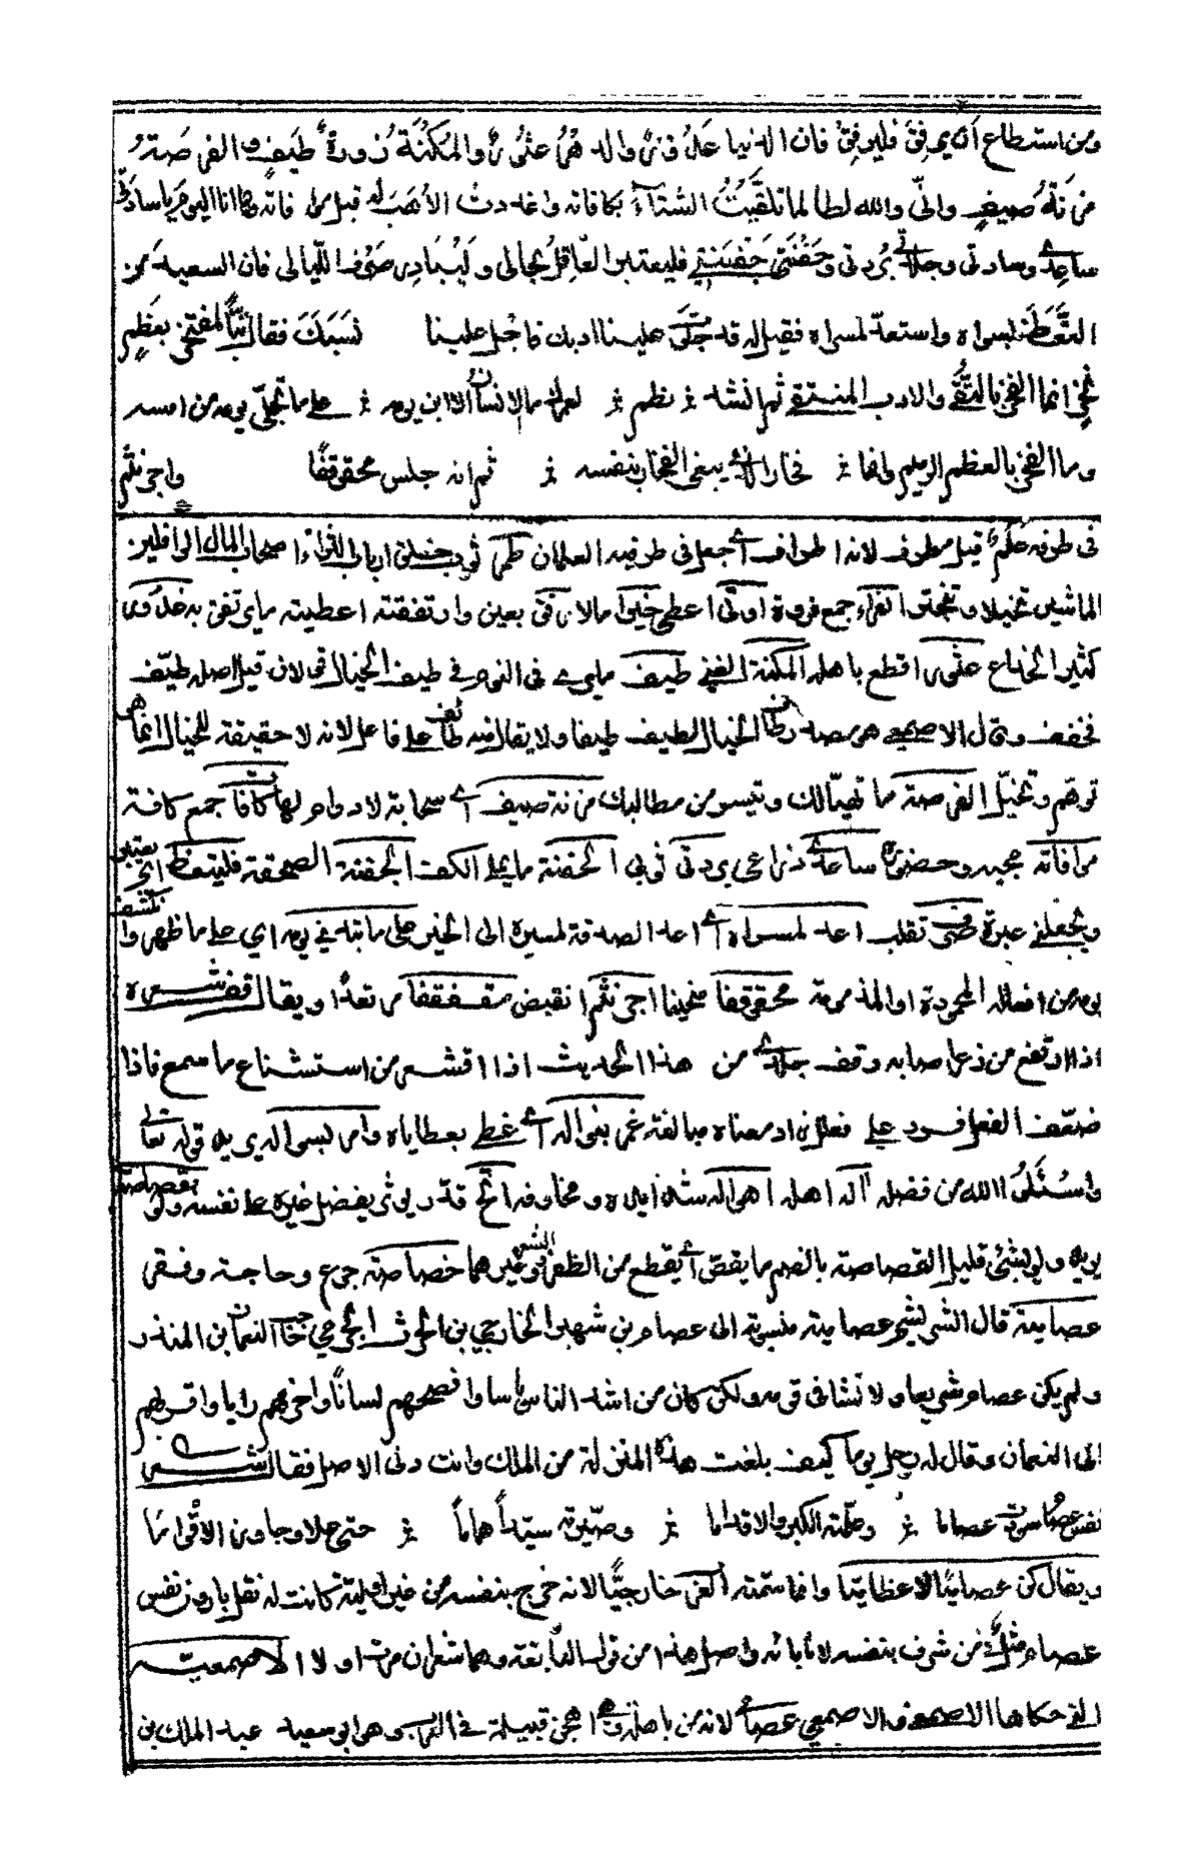 ومن استطاع ان يرفق فليرفق فان الدنيا غدور والدهر عثور والمكنة زورة طيف والفرصة
مزنة صيف واني والله لطالما تلقيت الشتاء بكافاته واعددت الاهب له قبل موافاته وها انا اليوم يا سادتي
ساعدي وسادتي وجلدتي بردتي وحفنتي جفنتي فليعتبر العاقل بحالي وليبادر صرف الليالي فان السعيد من
اتعظ بسواه واستعد لمسراه فقيل له قد جلوت علينا ادبك فاجل علينا نسبك فقال تبا لمفتخر بعظم
نخر انما الفخر بالتقى والادب المنتقى ثم انشد نظم لعمرك ما الانسان الا ابن يومه على ما تجلى يومه لا ابن امسه
وما الفخر بالعظم الرميم وانما فخار الذي يبغي الفخار بنفسه ثم انه جلس محقوقفا واجرنثم
في طرفه علم قيل مطرف لانه اطراف اي جعل في طرفيه العلمان طمر ثوب خلق ارباب الثراء اصحاب المال الرافلين
الماشين تخيلا وتبخترا الفراء جمع فروة اوتي اعطي خيرا مالا
كثير الخداع عثور اقطع باهله المكنة الغنى طيف ما يرى في النوم
فخفف وقال الاصمعي هو مصدر طاف الخيال يطيف طيفا ولا يقال منه طائف على فاعل لانه لا حقيقة للخيال انما هو
توهم وتخيل الفرصة ما تهيا لك وتيسر من مطالبك مزنة صيف اي سحابة لا دوام لها كافات جمع كافة
موافاته مجيه وحضوره ساعدي ذراعي بردتي ثوبي الحفنة ما يملا الكف الجفنة الصحفة فليتعظ اي يعتبر
ويجعلني عبرة صرف تقلب اعد لمسراه اي اعد الصدقة لمسيره الى الخير على ما تجلى في يومه اي على ما ظهر وانكشف
يومه من افعاله المحمودة او المذمومة محقوقفا منحنيا اجرنثم انقبض مقفقفا مرتعدا ويقال اقشعر
اذا ارتفع من ذعر اصابه وقف جلدي من هذا الحديث اذا اقشعر من استشناع ما سمع فاذا
ضعف الفعل فرد على فعلل ازداد معناه مبالغة غمر بنواله اي غطى بعطاياه وامر لبسوالدي يريد قوله تعالى
واسئلوا الله من فضله آله اهله اهواله شدائده ومخاوفه اتح قدر يوثر يفضل غيره على نفسه ولو بقصاصته
يريد ولو بشئ قليل القصاصة بالضم ما يقص اي يقطع من الظفر والشعر وغيرهما خصاصته جوع وحاجة وفقر
عصامية قال الشريشي عصامية منسوبة الى عصام بن شهبر الخارجي بن الحرث الجرمي حاجب النعمان بن المنذر
ولم يكن عصام شريفا ولا نشا في قومه ولكن كان من اشد الناس باسا وافصحهم لسانا واحزمهم رايا واقربهم
الى النعمان وقال له رجل يوما كيف بلغت هذه المنزلة من الملك وانت دني الاصل فقال شعر
نفس عصام سودت عصاما وعلمته الكر والاقداما وصيرته سيدا هماما حتى علا وجاوز الاقواما
ويقال كن عصاميا لا عظاميا وانما سمته العرب خارجيا لانه خرج بنفسه من غير اولية كانت له
عصام مثل لمن شرف بنفسه لا بابائه واصل هذا من قول النابغة وهما شعران مرت اولا الاصمعية
التي حكاها الاصمعي والاصمعي عصامي لانه من باهلة وهي اهجن قبيلة في العرب وهو ابو سعيد عبد الملك بن